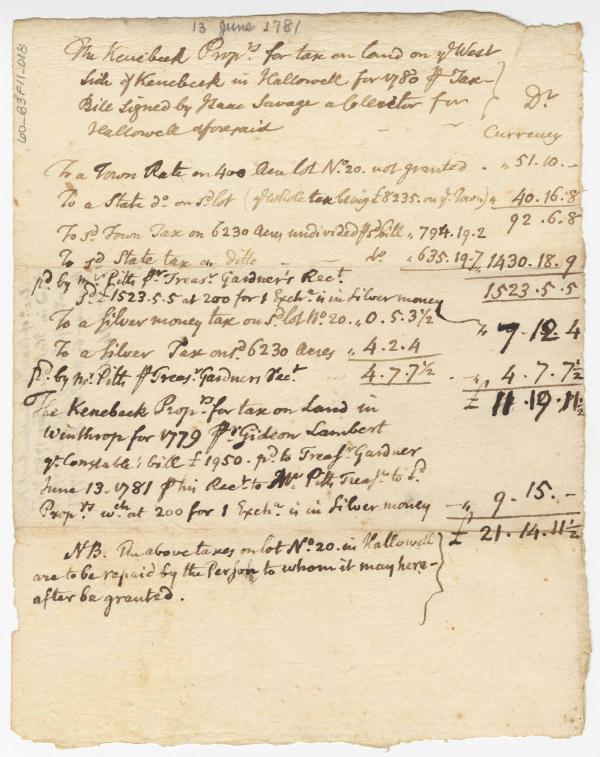 13 June 1781
60-B3F11-013
The Kenebeck Prop.rs for tax on land on ye West
Side of Kenebeck in Hallowell for 1780 ⅌ Tax-
Bill Signed by Isaac Savage a Collector for
Hallowell afforesaid - - Dr
Currency
To a Town Rate on 400 Acre lot No. 20. not granted . " 51. 10. -
To a State do on sd lot (ye whole tax being £8235. on ye Town) " 40. 16. 8
92 . 6. 8
To sd Town Tax on 6230 Acres undivided ⅌ sd bill " 794. 19. 2
To sd State tax on ditto - - do " 635. 19. 7 " 1430. 18. 9
pd by Mr Pitts ⅌r Treasr Gardner's Rect. 1523. 5. 5
sd £1523. 5. 5 at 200 for 1 Exche is in Silver money
To a Silver money tax on sd lot No 20. " 0. 5. 3 1/2 " 7. 12. 4
To a Silver Tax on sd 6230 Acres " 4. 2. 4
pd by Mr Pitts ⅌ Treasr Gardners Rect 4. 7. 7 1/2 - " 4. 7. 7 1/2
The Kenebeck Proprs for tax on Land in £ 11. 19. 11 1/2
Winthrop for 1779 ⅌r Gideon Lambert
ye Constable's bill £1950. pd to Treasr Gardner
June 13. 1781 ⅌ his Rect to Mr Pitts Treasr to sd
Proprs wch at 200 for 1 Exche is in Silver money - " 9. 15. -
£ 21. 14. 11 1/2
NB. The above taxes on lot No 20. in Hallowell
are to be repaid by the Person to whom it may here-
after be granted.